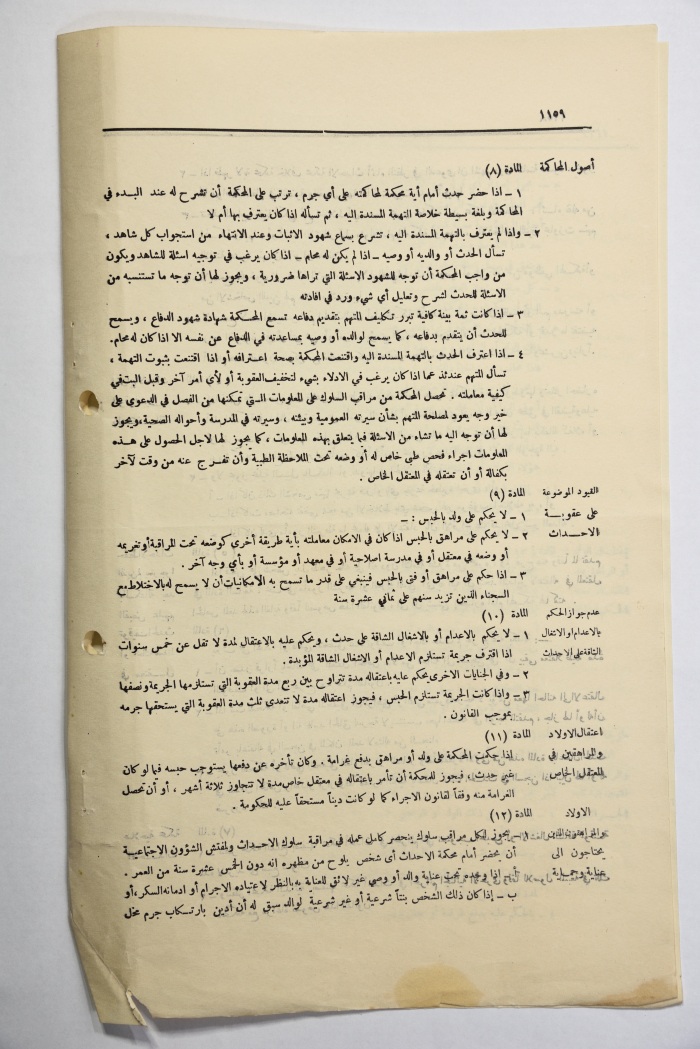 ١١٥٩
أصول المحاكمة المادة (٨)
١ - اذا حضر حدث أمام أية محكمة لمحاكمته على أي جرم ، ترتب على المحكمة أن تشرح له عند البـدء في
المحاكمة وبلغة بسيطة خلاصة التهمة المسندة اليه ، ثم تسأله اذا كان يعترف بها أم لا
٢ - واذا لم يعترف بالتهمة المسندة اليه ، تشرع بسماع شهود الاثبات وعند الانتهاء من استجواب كل شاهد ،
تسأل الحدث أو والديه أو وصيه - اذا لم يكن له محام - اذا كان يرغب في توجيه اسئلة للشاهد ويكون
من واجب المحكمة أن توجه للشهود الاسئلة التي تراها ضرورية ، ويجوز لها أن توجه ما تستنسبه من
الاسئلة للحدث لشرح وتعليل أي شيء ورد في افادته
٣ - اذا كانت ثمة بينة كافية تبرر تكليف المتهم بتقديم دفاعه تسمع المحكمة شهادة شهود الدفاع ، ويسمح
للحدث أن يتقدم بدفاعه ، كما يسمح لوالده أو وصيه بمساعدته في الدفاع عن نفسه الا اذا كان له محام.
٤ - اذا اعترف الحدث بالتهمة المسندة اليه واقتنعت المحكمة بصحة اعترافه أو اذا اقتنعت بثبوت التهمة ،
تسأل المتهم عندئذ عما اذا كان يرغب في الادلاء بشيء لتخفيف العقوبة أو لأي أمر آخر وقبل البت في
كيفية معاملته . تحصل المحكمة من مراقب السلوك على المعلومات التي تمكنها من الفصل في الدعوى على
خير وجه يعود لمصلحة المتهم بشأن سيرته العمومية وبيئته ، وسيرته في المدرسة وأحواله الصحية ، ويجوز
لها أن توجه اليه ما تشاء من الاسئلة فيما يتعلق بهذه المعلومات ، كما يجوز لها لاجل الحصول على هـذه
المعلومات اجراء فحص طبي خاص له أو وضعه تحت الملاحظة الطبية وأن تفرج عنه من وقت لآخر
بكفالة أو أن تعتقله في المعتقل الخاص .
القيود الموضوعة المادة (٩)
على عقوبـة ١ - لا يحكم على ولد بالحبس : -
الاحـداث ٢ - لا يحكم على مراهق بالحبس اذا كان في الامكان معاملته بأية طريقة أخرى كوضعه تحت المراقبة أو تغريمه
أو وضعه في معتقل أو في مدرسة اصلاحية أو في معهد أو مؤسسة أو بأي وجه آخر .
٣ - اذا حكم على مراهق أو فتى بالحبس فينبغي على قدر ما تسمح به الامكانيات أن لا يسمح له بالاختلاط مع
السجناء الذين تزيد سنهم على ثماني عشرة سنة
عدم جواز الحكم المادة (١٠)
بالاعدام أو الاشغال ١ - لا يحكم بالاعدام أو بالاشغال الشاقة على حدث ، ويحكم عليه بالاعتقال لمدة لا تقل عن خمس سنوات
الشاقة على الاحداث اذا اقترف جريمة تستلزم الاعدام أو الاشغال الشاقة المؤبدة .
٢ - وفي الجنايات الاخرى يحكم عليه باعتقاله مدة تتراوح بين ربع مدة العقوبة التي تستلزمها الجريمة ونصفها
٣ - واذا كانت الجريمة تستلزم الحبس ، فيجوز اعتقاله مدة لا تتعدى ثلث مدة العقوبة التي يستحقها جرمه
بموجب القانون .
اعتقال الاولاد المادة (١١)
والمراهقين في اذا حكمت المحكمة على ولد أو مراهق بدفع غرامة . وكان تأخره عن دفعها يستوجب حبسه فيما لو كان
المعتقل الخاص غير حدث ، فيجوز للمحكمة أن تأمر باعتقاله في معتقل خاص مدة لا تتجاوز ثلاثة أشهر ، أو أن تحصل
الغرامة منه وفقاً لقانون الاجراء كما لو كانت ديناً مستحقاً عليه للحكومة .
الاولاد المادة (١٢)
١ - يجوز لكل مراقب سلوك ينحصر كامل عمله في مراقبة سلوك الاحـداث ولمفتش الشؤون الاجتماعيـة
يحتاجون الى أن يحضر أمام محكمة الاحداث أي شخص يلوح من مظهره انه دون الخمس عشرة سنة من العمر .
عناية وحمـاية أ - اذا وجده تحت عناية والد أو وصي غير لائق للعناية به بالنظر لاعتياده الاجرام أو ادمانه السكر ، أو
ب - اذا كان ذلك الشخص بنتاً شرعية أو غير شرعية لوالد سبق له أن أدين بارتسكاب جرم مخل